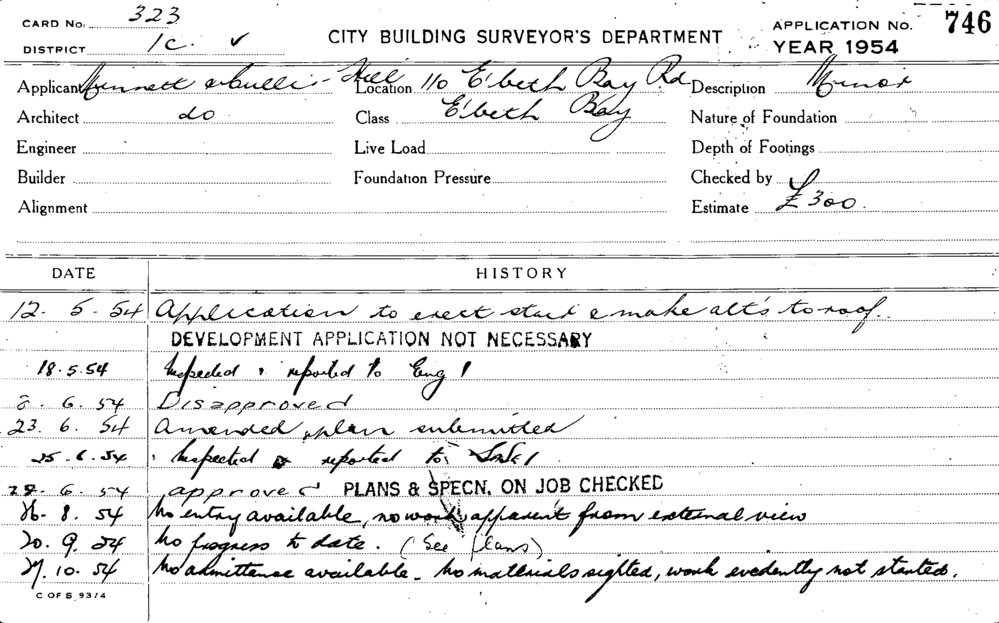 CARD No. 323
DISTRICT 1c. ✓
CITY BUILDING SURVEYOR'S DEPARTMENT
APPLICATION No. 746
YEAR 1954
Applicant Minnett Hill Location 110 E'beth Bay Rd Description Minor
Architect do Class E'beth Bay Nature of Foundation
Engineer Live Load Depth of Footings
Builder Foundation Pressure Checked by
Alignment Estimate £300.
DATE HISTORY
12. 5. 54 Application to erect stair & make alt's to roof.
DEVELOPMENT APPLICATION NOT NECESSARY
18.5.54 Inspected & reported to Eng 1
8. 6. 54 Disapproved
23. 6. 54 Amended plan submitted
25.6.54 Inspected & reported to
6. 54 approved PLANS & SPECN. ON JOB CHECKED
8. 54 No entry available, no work apparent from external view
20. 9. 54 No progress to date. (See plans)
27. 10. 54 No admittance available. No materials sighted, work evidently not started.
C OF S 93/4